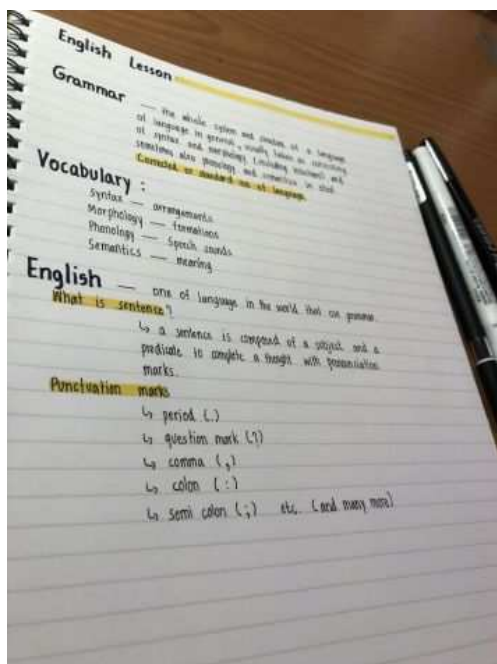 English Lesson
Grammar — the whole system and structure of a language
of language in general, usually taken as consisting
of syntax and morphology (including inflections) and
sometimes also phonology and semantics in
Corrected or standard use of language.
Vocabulary :
Syntax — arrangements
Morphology — formations
Phonology — Speech sounds
Semantics — meaning
English — one of language in the world that on grammar
What is sentence?
↳ a sentence is composed of a subject and a
predicate to complete a thought with pronunciation
marks.
Punctuation marks
↳ period (.)
↳ question mark (?)
↳ comma (,)
↳ colon (:)
↳ semi colon (;) etc. (and many more)